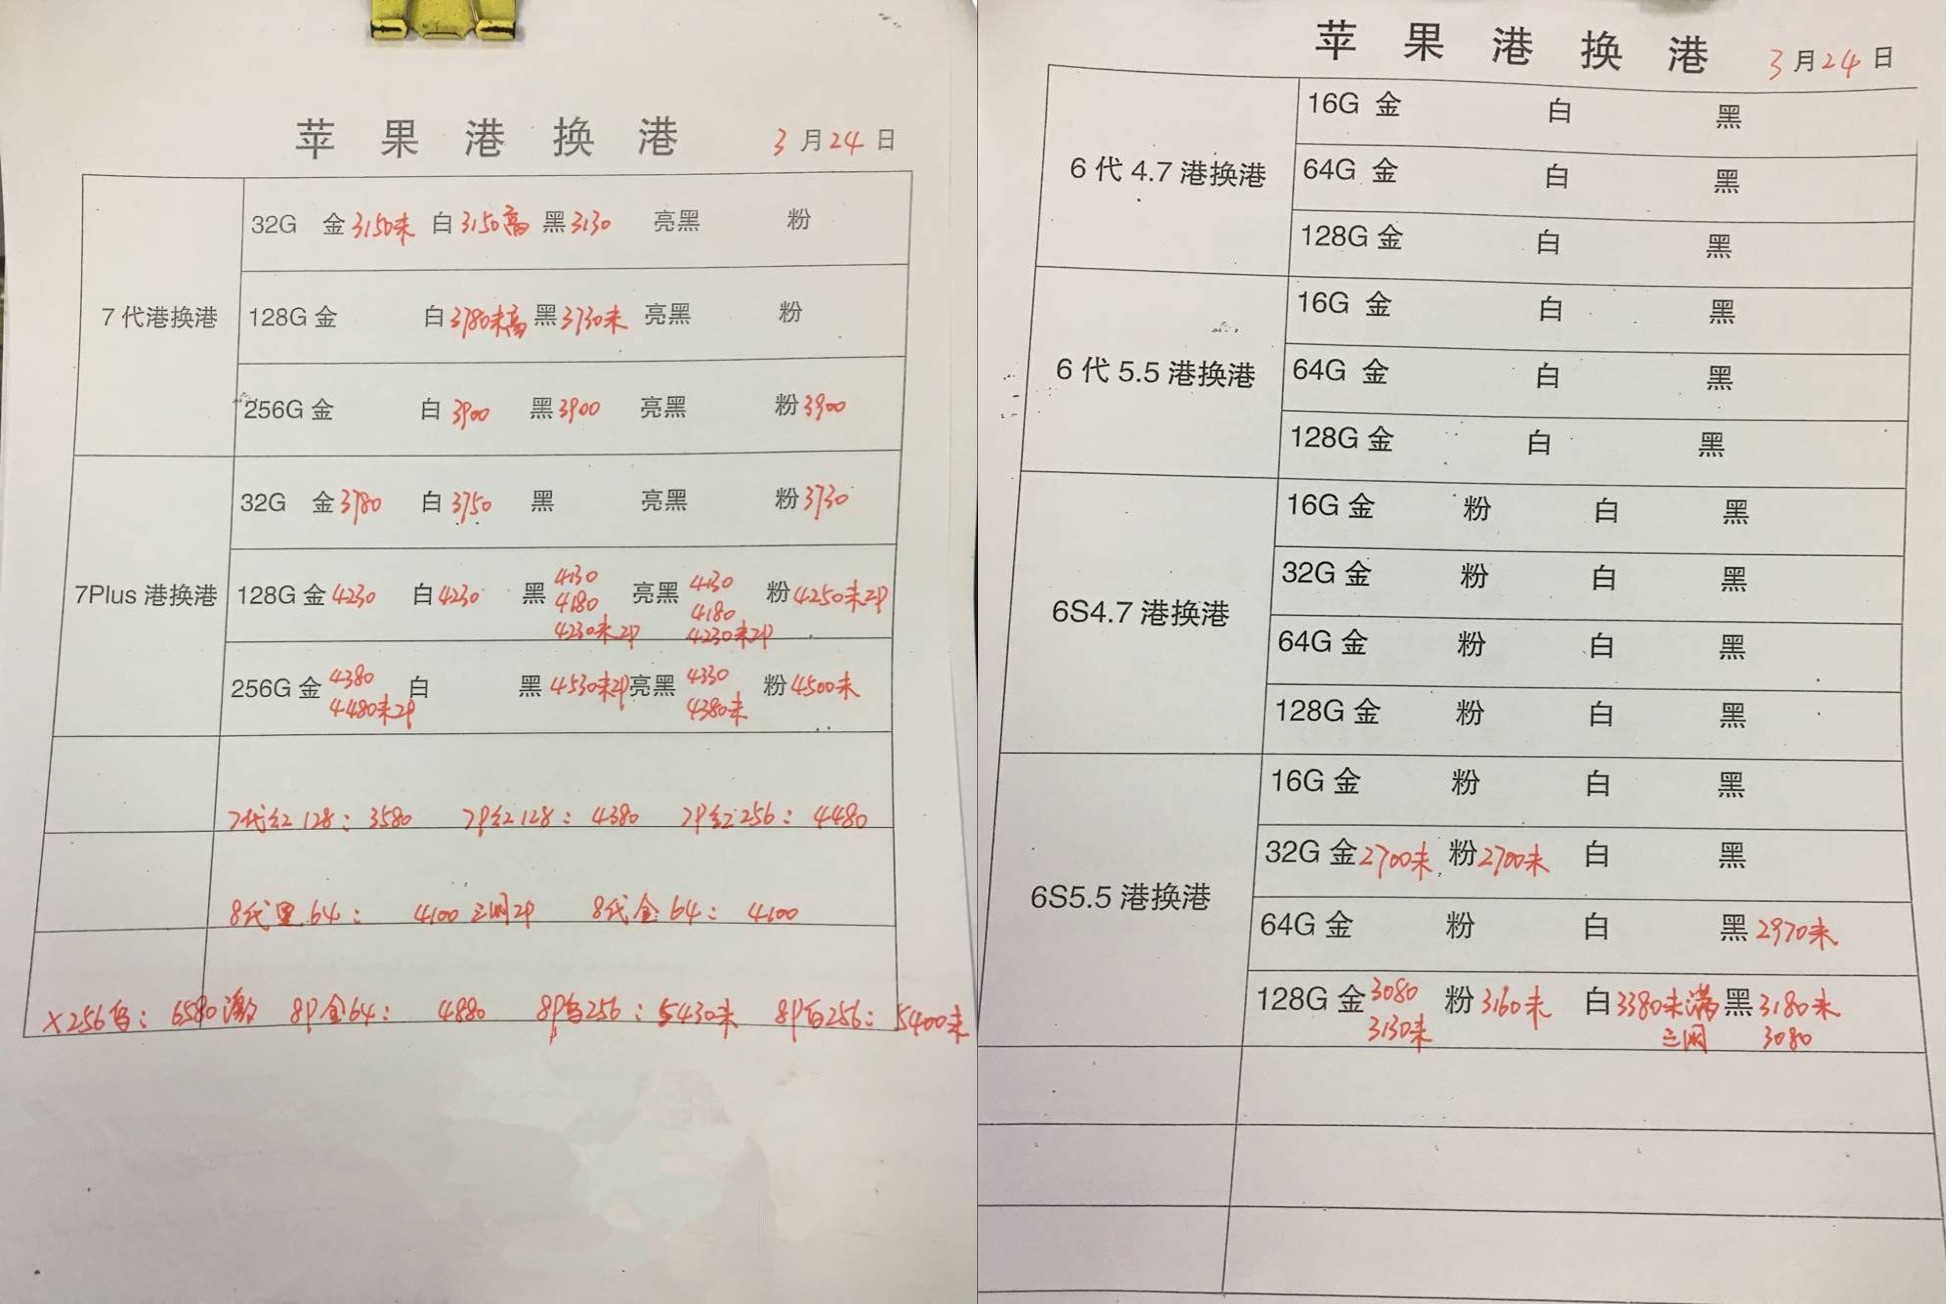 苹果港换港 3月24日
7代港换港
32G 金3150未 白3150高 黑3130 亮黑 粉
128G金 白3780未高 黑3730未 亮黑 粉
256G金 白3900 黑3900 亮黑 粉3900
7Plus港换港
32G 金3780 白3750 黑 亮黑 粉3730
128G金4230 白4230 黑4130 亮黑4130 粉4250未2P
4180 4180
4230未2P 4230未2P
256G金4380 白 黑4530未2P 亮黑4330 粉4500未
4480未2P 4380未
7代红128：3580 7P红128：4380 7P红256：4480
8代黑64：4100三网2P 8代金64：4100
X256白：6580激 8P金64：4880 8P白256：5430未 8P白256：5400未
苹果港换港 3月24日
6代4.7港换港
16G 金 白 黑
64G 金 白 黑
128G金 白 黑
6代5.5港换港
16G 金 白 黑
64G 金 白 黑
128G金 白 黑
6S4.7港换港
16G金 粉 白 黑
32G金 粉 白 黑
64G金 粉 白 黑
128G金 粉 白 黑
6S5.5港换港
16G金 粉 白 黑
32G金2700未 粉2700未 白 黑
64G金 粉 白 黑2970未
128G金3080 粉3160未 白3380未满 黑3180未
3130未 三网 3080